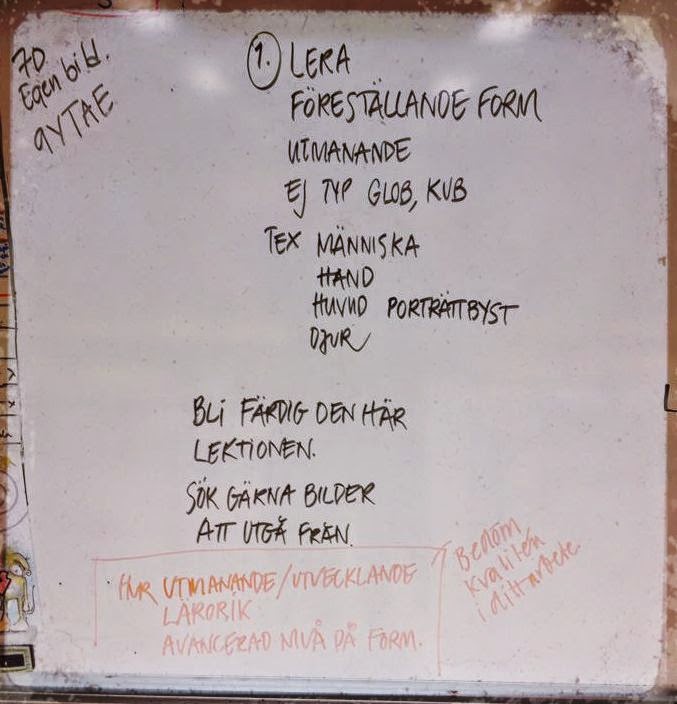 7D
Egen bild.
9YTAE
1. LERA
FÖRESTÄLLANDE FORM
UTMANANDE
EJ TYP GLOB, KUB
TEX MÄNNISKA
HAND
HUVUD PORTRÄTTBYST
DJUR
BLI FÄRDIG DEN HÄR
LEKTIONEN.
SÖK GÄRNA BILDER
ATT UTGÅ FRÅN.
HUR UTMANANDE/UTVECKLANDE
LÄRORIK
AVANCERAD NIVÅ PÅ FORM.
Bedöm
kvalitén
i ditt arbete